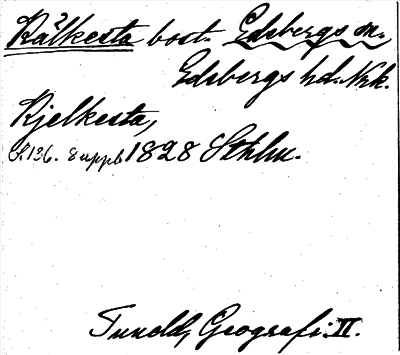 Kälkesta bost. Edsbergs sn.
Edsbergs hd. Nrk.
Kjelkesta,
S. 136. 8 uppl. 1828 Sthlm.
Tuneld, Geografi. II.